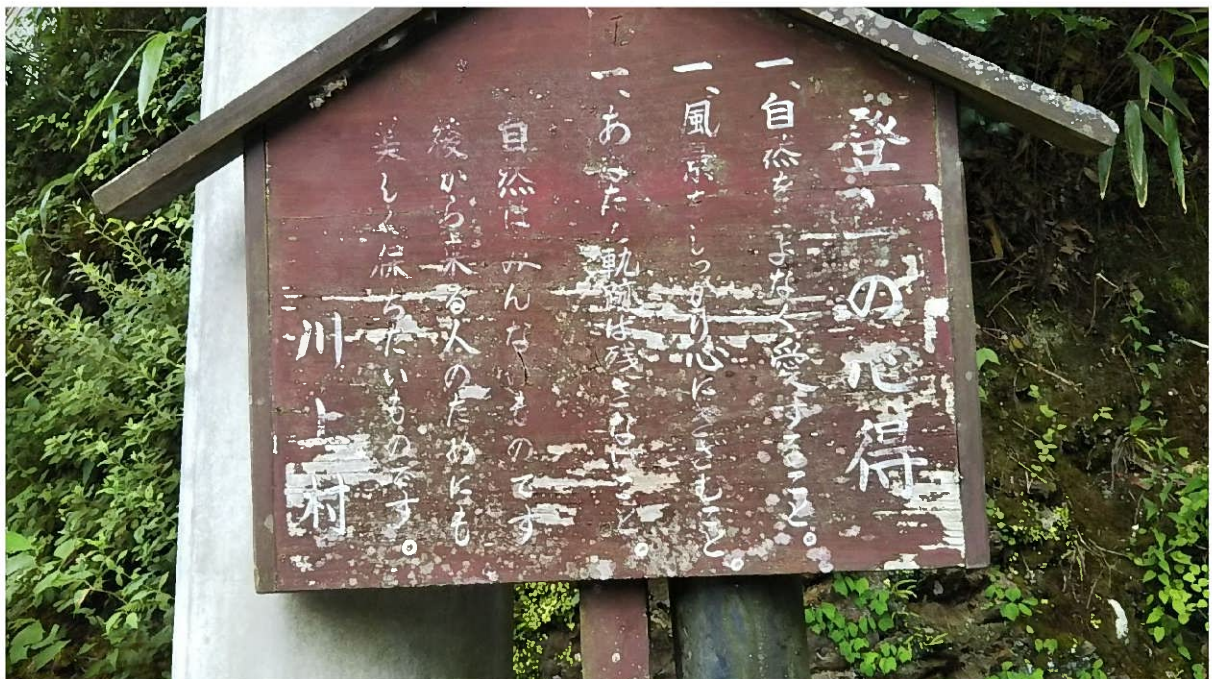 登山の心得
一、自然をこよなく愛すること。
一、風景をしっかり心にきざむこと
一、あなたの軌跡は残さないこと。
自然はみんなのものです
後から来る人のためにも
美しく保ちたいものです。
川上村